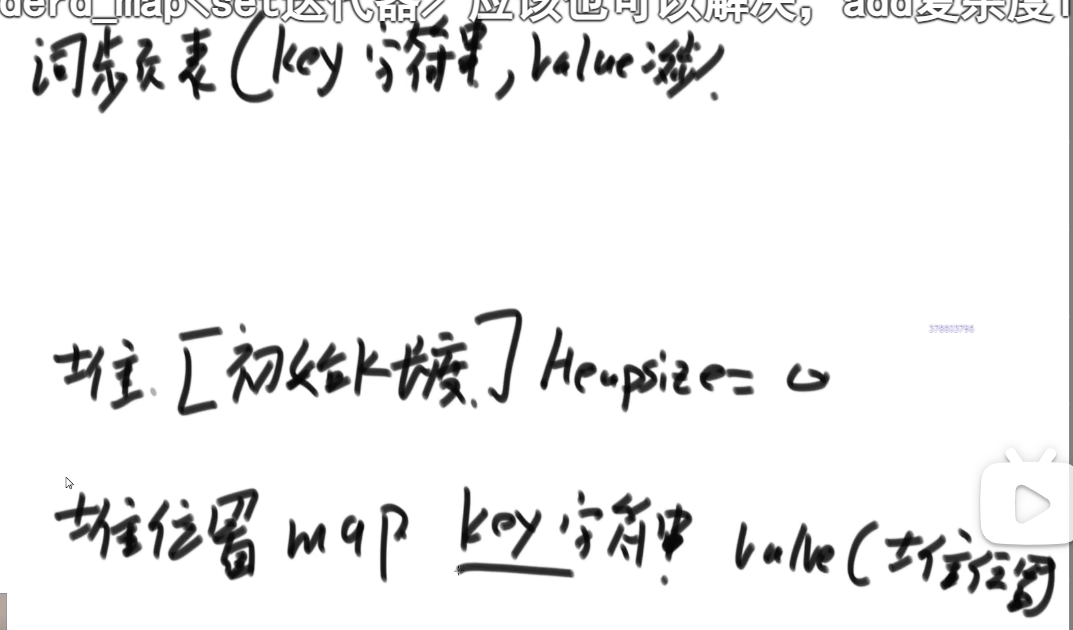 derd_map<set迭代器> 应该也可以解决, add复杂度
词频表(key 字符串, value 次数)
堆 [初始K长度] Heapsize = 0
376803796
堆位置 map key 字符串 value(堆位置)